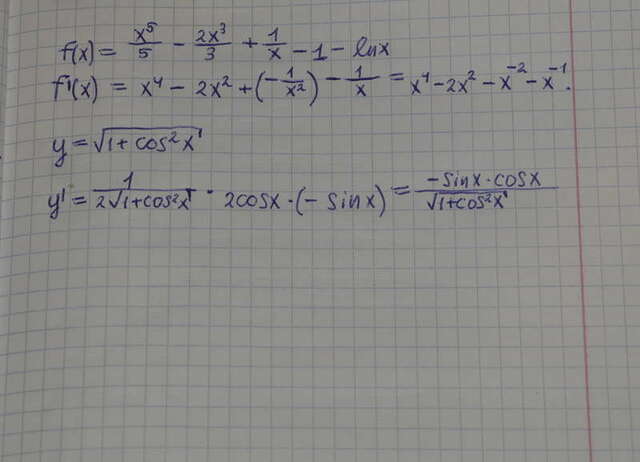 f(x) = x⁵/5 - 2x³/3 + 1/x - 1 - lnx
f'(x) = x⁴ - 2x² + (-1/x²) - 1/x = x⁴ - 2x² - x⁻² - x⁻¹.
y = √(1 + cos²x)
y' = 1/(2√(1+cos²x)) · 2cosx · (- sinx) = (-sinx · cosx)/√(1+cos²x)